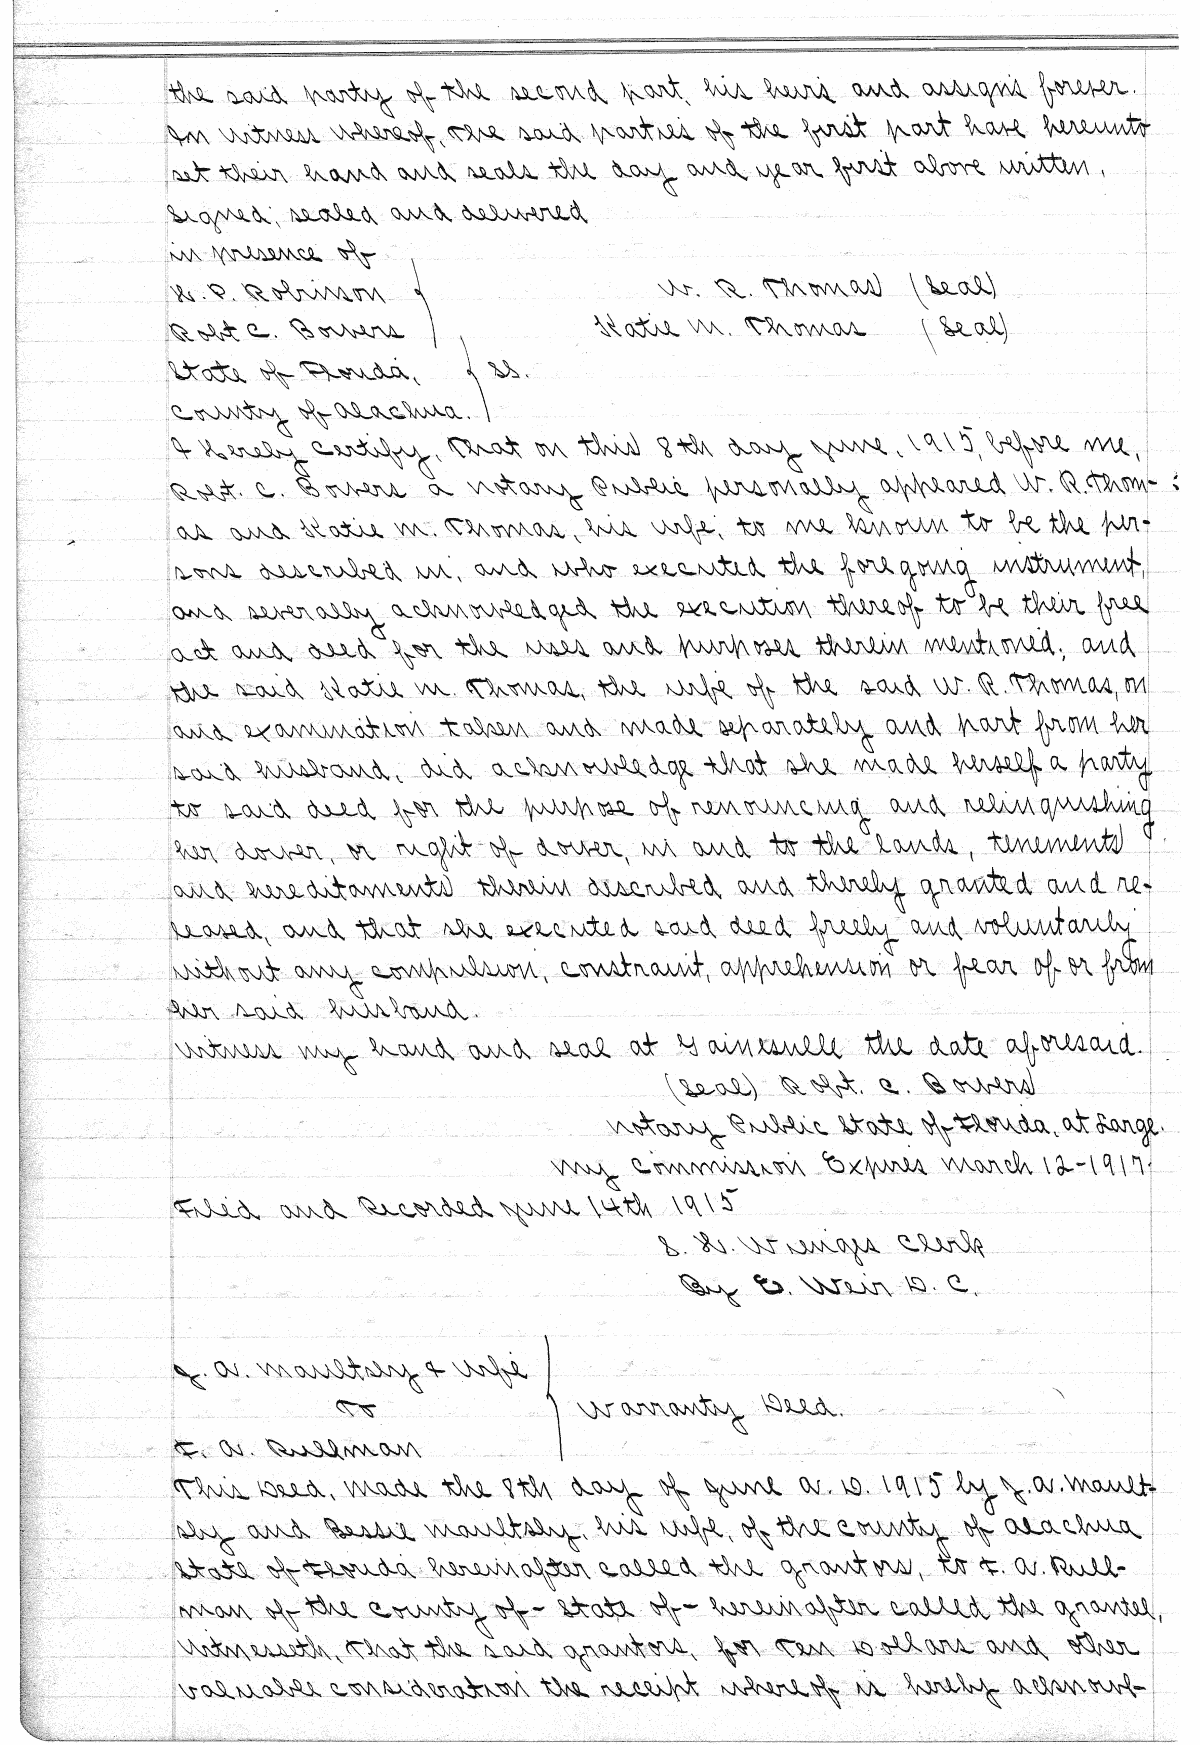 the said party of the second part, his heirs and assigns forever.
In Witness Whereof, the said parties of the first part have hereunto
set their hand and seals the day and year first above written.
Signed, sealed and delivered
in presence of
H. P. Robinson W. R. Thomas (Seal)
Robt C. Bowers Katie M. Thomas (Seal)
State of Florida, ss.
County of Alachua.
I Hereby Certify, That on this 8th day June, 1915, before me,
Robt. C. Bowers a Notary Public personally appeared W. R. Thom-
as and Katie M. Thomas, his wife, to me known to be the per-
sons described in, and who executed the foregoing instrument,
and severally acknowledged the execution thereof to be their free
act and deed for the uses and purposes therein mentioned; and
the said Katie M. Thomas, the wife of the said W. R. Thomas, on
and examination taken and made separately and part from her
said husband, did acknowledge that she made herself a party
to said deed for the purpose of renouncing and relinquishing
her dower, or right of dower, in and to the lands, tenements
and hereditaments therein described and thereby granted and re-
leased, and that she executed said deed freely and voluntarily
without any compulsion, constraint, apprehension or fear of or from
her said husband.
Witness my hand and seal at Gainesville the date aforesaid.
(Seal) Robt. C. Bowers
Notary Public State of Florida, at Large.
My Commission Expires March 12-1917.
Filed and Recorded June 14th 1915
S. H. Wienges Clerk
By E. Weir D. C.
J. A. Maultsby & Wife
To Warranty Deed.
F. A. Rullman
This Deed, Made the 8th day of June A. D. 1915 by J. A. Mault-
sby and Bessie Maultsby, his wife, of the County of Alachua
State of Florida hereinafter called the grantors, to F. A. Rull-
man of the County of- State of- hereinafter called the grantee,
Witnesseth, That the said grantors, for Ten Dollars and other
valuable consideration the receipt whereof is hereby acknowl-